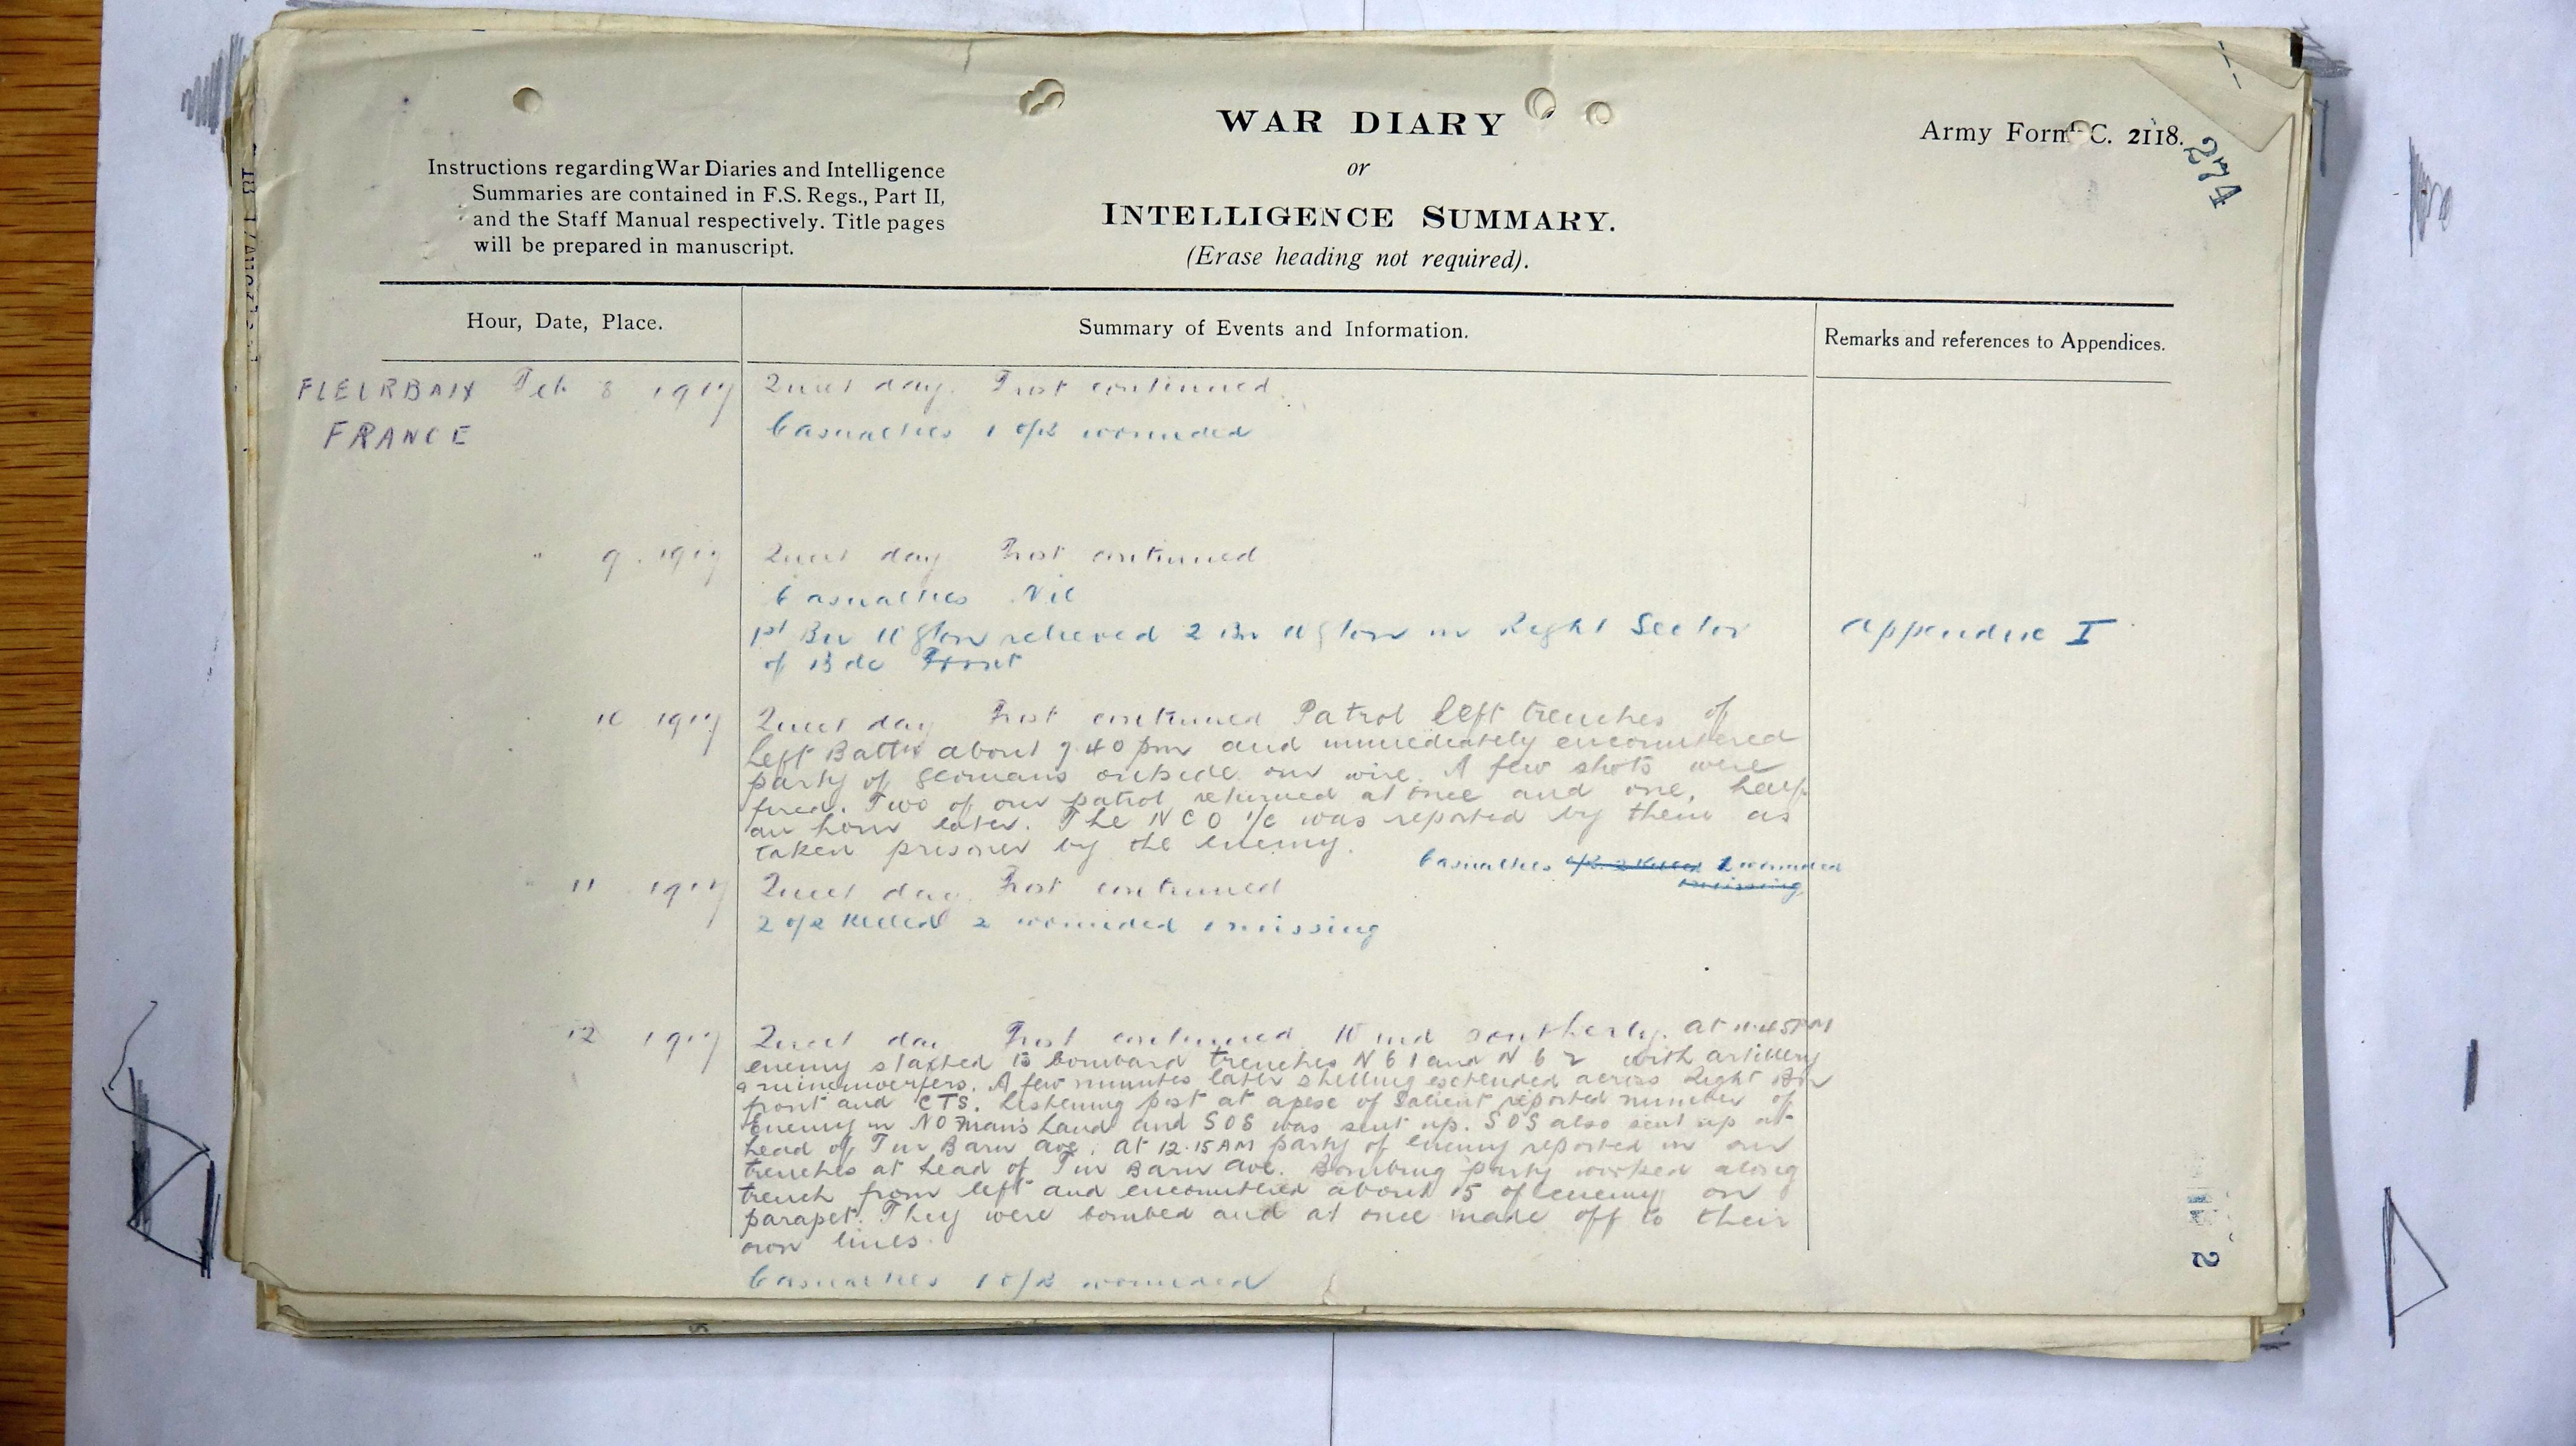 WAR DIARY
or
INTELLIGENCE SUMMARY.
(Erase heading not required).
Army Form C. 2118.
274
Instructions regarding War Diaries and Intelligence
Summaries are contained in F.S. Regs., Part II,
and the Staff Manual respectively. Title pages
will be prepared in manuscript.
Hour, Date, Place.
Summary of Events and Information.
Remarks and references to Appendices.
FLEURBAIX Feb 8 1917 Quiet day. Frost continued.
FRANCE Casualties 1 O/R wounded
" 9. 1917 Quiet day Frost continued
Casualties Nil
1st Bn Wgton relieved 2 Bn Wgton in Right Sector Appendix I
of Bde Front
10 1917 Quiet day Frost continued Patrol left trenches of
Left Battn about 7.40 pm and immediately encountered
party of Germans outside our wire. A few shots were
fired. Two of our patrol returned at once and one, half
an hour later. The NCO i/c was reported by them as
taken prisoner by the enemy.
Casualties O/R 2 Killed 2 wounded
missing
11 1917 Quiet day. Frost continued
2 O/R Killed 2 wounded 1 missing
12 1917 Quiet day Frost continued Wind southerly. At 11.45PM
enemy started to bombard trenches N 61 and N 62 with artillery
& minenwerfers. A few minutes later shelling extended across Right Bn
front and CTS. Listening post at apex of Salient reported number of
enemy in NO Mans Land and SOS was sent up. SOS also sent up at
head of Tin Barn Ave. At 12.15AM party of enemy reported in our
trenches at head of Tin Barn Ave. Bombing party worked along
trench from left and encountered about 15 of enemy on
parapet. They were bombed and at once made off to their
own lines.
Casualties 1 O/R wounded
2